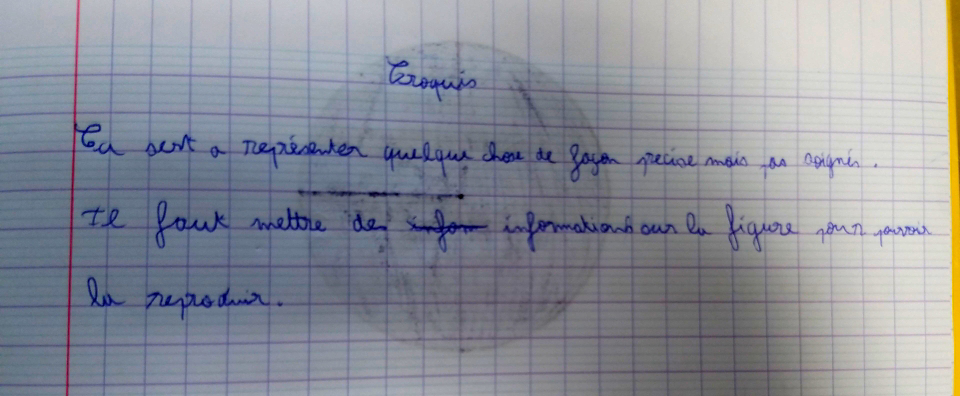 Croquis
Ça sert a représenter quelque chose de façon precise mais pas soigné.
Il faut mettre des infom informations sur la figure pour pouvoir
la reproduir.